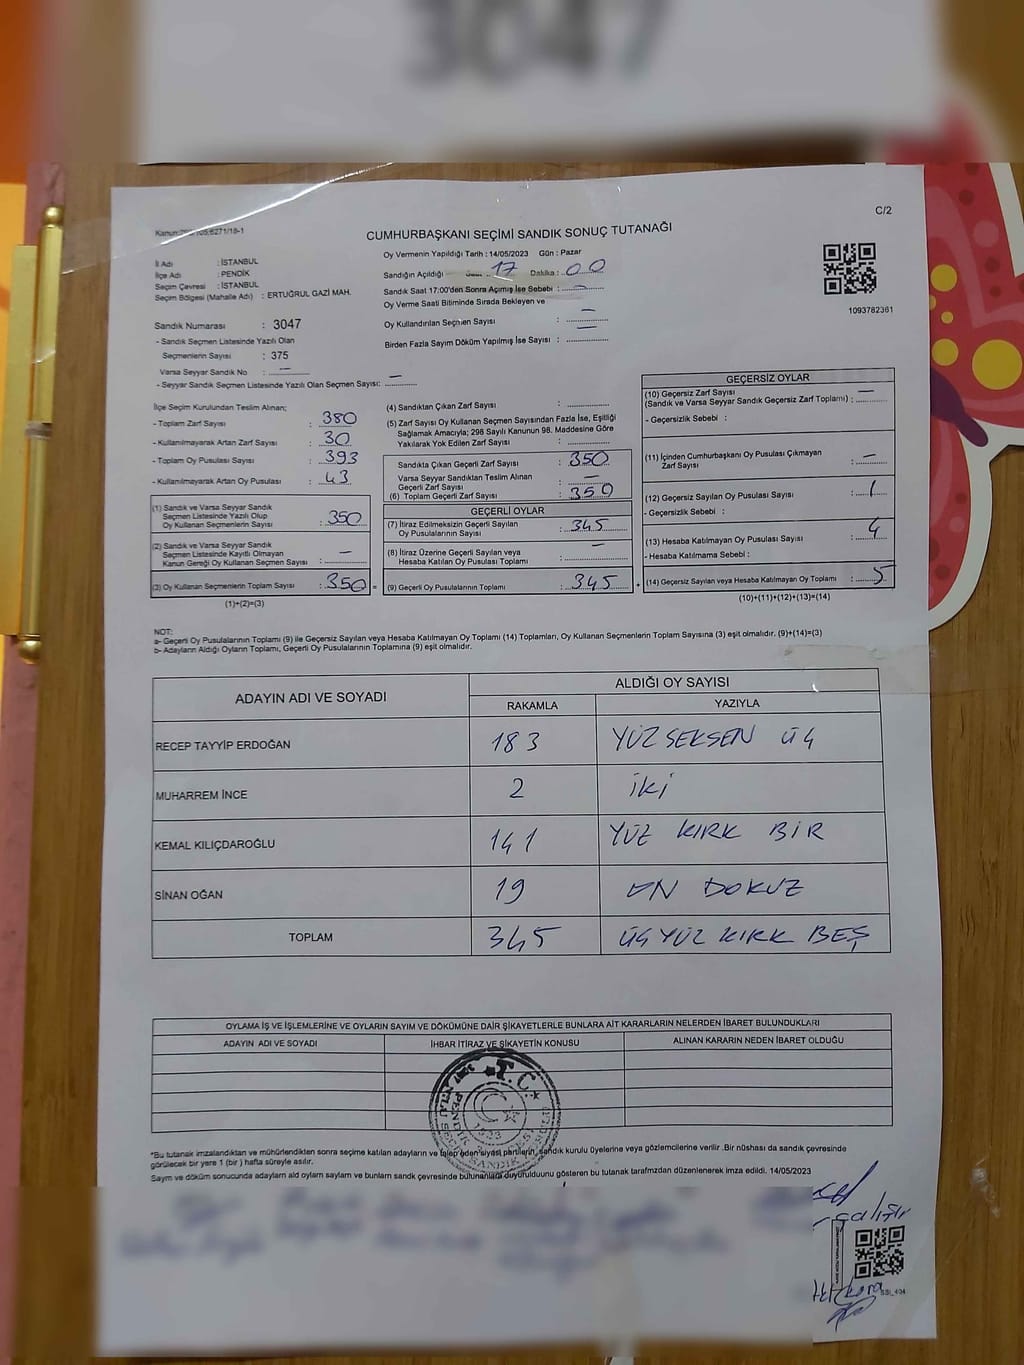 3047
C/2
CUMHURBAŞKANI SEÇİMİ SANDIK SONUÇ TUTANAĞI
İl Adı : İSTANBUL
İlçe Adı : PENDİK
Seçim Çevresi : İSTANBUL
Seçim Bölgesi (Mahalle Adı) : ERTUĞRUL GAZİ MAH.
Oy Vermenin Yapıldığı Tarih : 14/05/2023 Gün : Pazar
Sandığın Açıldığı Saat : 17 Dakika : 00
Sandık Saat 17:00'den Sonra Açımış İse Sebebi :
Oy Verme Saati Bitiminde Sırada Bekleyen ve
Oy Kullandırılan Seçmen Sayısı : —
Birden Fazla Sayım Döküm Yapılmış İse Sayısı : —
1093782361
Sandık Numarası : 3047
- Sandık Seçmen Listesinde Yazılı Olan
Seçmenlerin Sayısı : 375
Varsa Seyyar Sandık No : —
- Seyyar Sandık Seçmen Listesinde Yazılı Olan Seçmen Sayısı: —
İlçe Seçim Kurulundan Teslim Alınan;
- Toplam Zarf Sayısı : 380
- Kullanılmayarak Artan Zarf Sayısı : 30
- Toplam Oy Pusulası Sayısı : 393
- Kullanılmayarak Artan Oy Pusulası : 43
(1) Sandık ve Varsa Seyyar Sandık
Seçmen Listesinde Yazılı Olup
Oy Kullanan Seçmenlerin Sayısı : 350
(2) Sandık ve Varsa Seyyar Sandık
Seçmen Listesinde Kayıtlı Olmayan
Kanun Gereği Oy Kullanan Seçmen Sayısı : —
(3) Oy Kullanan Seçmenlerin Toplam Sayısı : 350 =
(1)+(2)=(3)
(4) Sandıktan Çıkan Zarf Sayısı :
(5) Zarf Sayısı Oy Kullanan Seçmen Sayısından Fazla İse, Eşitliği
Sağlamak Amacıyla; 298 Sayılı Kanunun 98. Maddesine Göre
Yakılarak Yok Edilen Zarf Sayısı :
Sandıkta Çıkan Geçerli Zarf Sayısı : 350
Varsa Seyyar Sandıktan Teslim Alınan
Geçerli Zarf Sayısı :
(6) Toplam Geçerli Zarf Sayısı : 350
GEÇERLİ OYLAR
(7) İtiraz Edilmeksizin Geçerli Sayılan
Oy Pusulalarının Sayısı : 345
(8) İtiraz Üzerine Geçerli Sayılan veya
Hesaba Katılan Oy Pusulası Toplamı : —
(9) Geçerli Oy Pusulalarının Toplamı : 345 +
GEÇERSİZ OYLAR
(10) Geçersiz Zarf Sayısı
(Sandık ve Varsa Seyyar Sandık Geçersiz Zarf Toplamı) : —
- Geçersizlik Sebebi :
(11) İçinden Cumhurbaşkanı Oy Pusulası Çıkmayan
Zarf Sayısı : —
(12) Geçersiz Sayılan Oy Pusulası Sayısı : 1
- Geçersizlik Sebebi :
(13) Hesaba Katılmayan Oy Pusulası Sayısı : 4
- Hesaba Katılmama Sebebi :
(14) Geçersiz Sayılan veya Hesaba Katılmayan Oy Toplamı : 5
(10)+(11)+(12)+(13)=(14)
NOT:
a- Geçerli Oy Pusulalarının Toplamı (9) ile Geçersiz Sayılan veya Hesaba Katılmayan Oy Toplamı (14) Toplamları, Oy Kullanan Seçmenlerin Toplam Sayısına (3) eşit olmalıdır. (9)+(14)=(3)
b- Adayların Aldığı Oyların Toplamı, Geçerli Oy Pusulalarının Toplamına (9) eşit olmalıdır.
ADAYIN ADI VE SOYADI ALDIĞI OY SAYISI
RAKAMLA YAZIYLA
RECEP TAYYİP ERDOĞAN 183 YÜZ SEKSEN ÜÇ
MUHARREM İNCE 2 İKİ
KEMAL KILIÇDAROĞLU 141 YÜZ KIRK BİR
SİNAN OĞAN 19 ON DOKUZ
TOPLAM 345 ÜÇ YÜZ KIRK BEŞ
OYLAMA İŞ VE İŞLEMLERİNE VE OYLARIN SAYIM VE DÖKÜMÜNE DAİR ŞİKAYETLERLE BUNLARA AİT KARARLARIN NELERDEN İBARET BULUNDUKLARI
ADAYIN ADI VE SOYADI İHBAR İTİRAZ VE ŞİKAYETİN KONUSU ALINAN KARARIN NEDEN İBARET OLDUĞU
T.C.
*Bu tutanak imzalandıktan ve mühürlendikten sonra seçime katılan adayların ve talep eden siyasi partilerin, sandık kurulu üyelerine veya gözlemcilerine verilir .Bir nüshası da sandık çevresinde
görülecek bir yere 1 (bir ) hafta süreyle asılır.
Sayım ve döküm sonucunda adayların ald oyların saym ve bunların sandk çevresinde bulunanlara duyurulduunu gösteren bu tutanak tarafmzdan düzenlenerek imza edildi. 14/05/2023